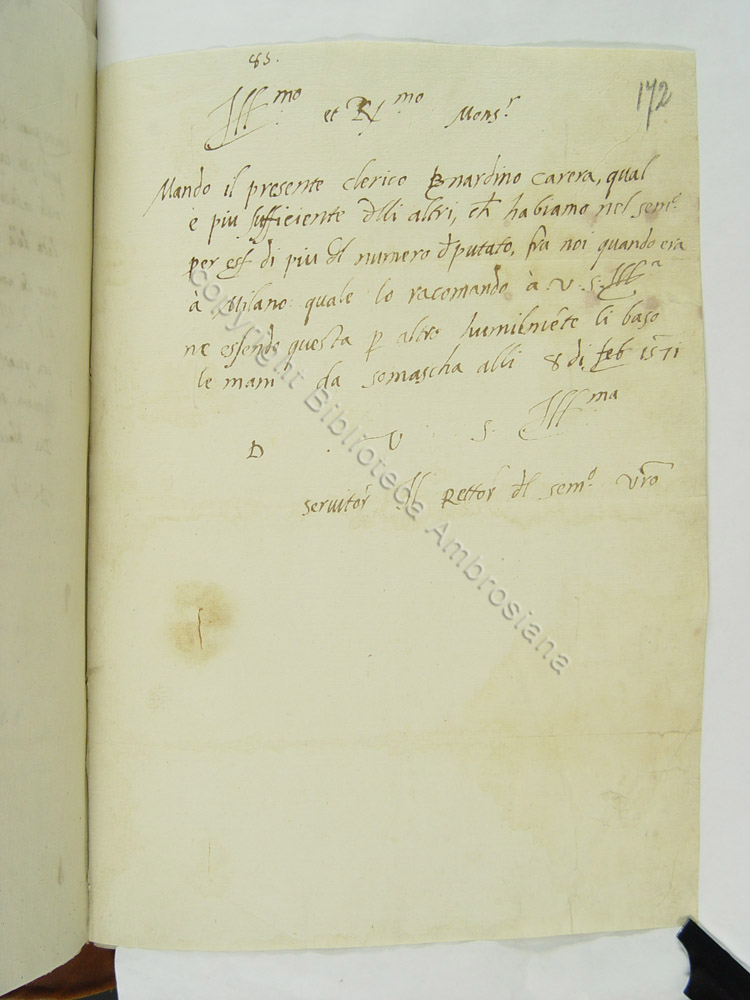 83.
172
Ill.mo et R.mo Mons.r
Mando il presente clerico Bnardino Carera, qual
è più sufficiente dlli altri, ch habiamo nel sem.o
per ess di piu dl numero dputato, fra noi quando era
à Milano quale lo racomando à V. S. Ill.a
ne essendo questa p altro humilmẽte li baso
le mani da somascha alli 8 di feb 1571
D V S Ill.ma
Servitor Il Rettor dl sem.o vro
copyright Biblioteca Ambrosiana